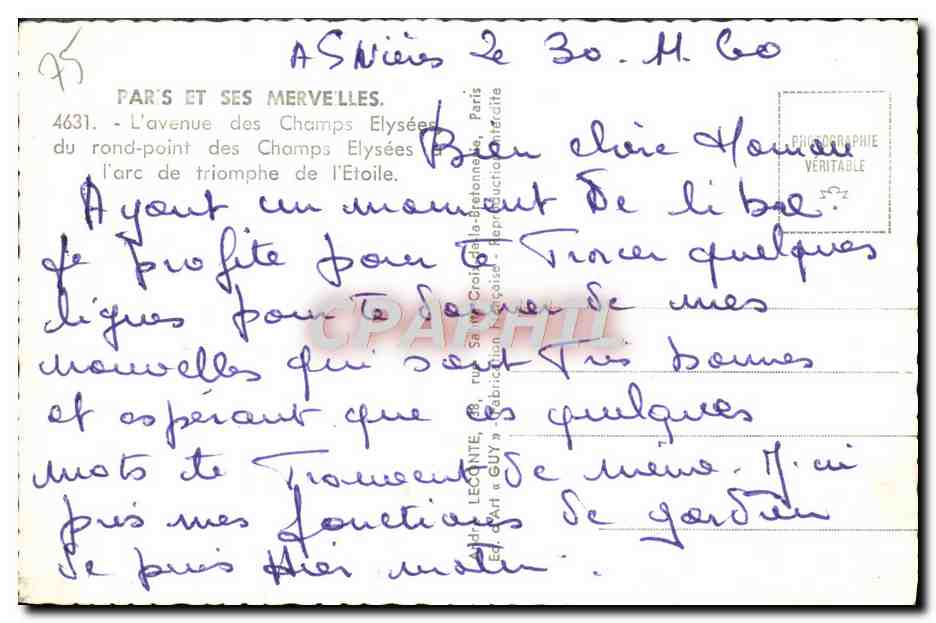 75
ASNières le 30. 11. 60
PARIS ET SES MERVEILLES.
4631. - L'avenue des Champs Elysées
du rond-point des Champs Elysées à
l'arc de triomphe de l'Etoile.
PHOTOGRAPHIE
VÉRITABLE
Bien chère Maman
Ayant un moment de libre.
je profite pour te Tracer quelques
lignes pour te donner de mes
nouvelles qui sont Très bonnes
et espérant que ces quelques
mots te Trouvent de même. J'ai
pris mes fonctions de gardien
de puis Hier matin.
André LECONTE, 38, rue Sainte-Croix-de-la-Bretonnerie, Paris
Ed. d'Art « GUY » - Fabrication Française - Reproduction interdite
CPAPHIL